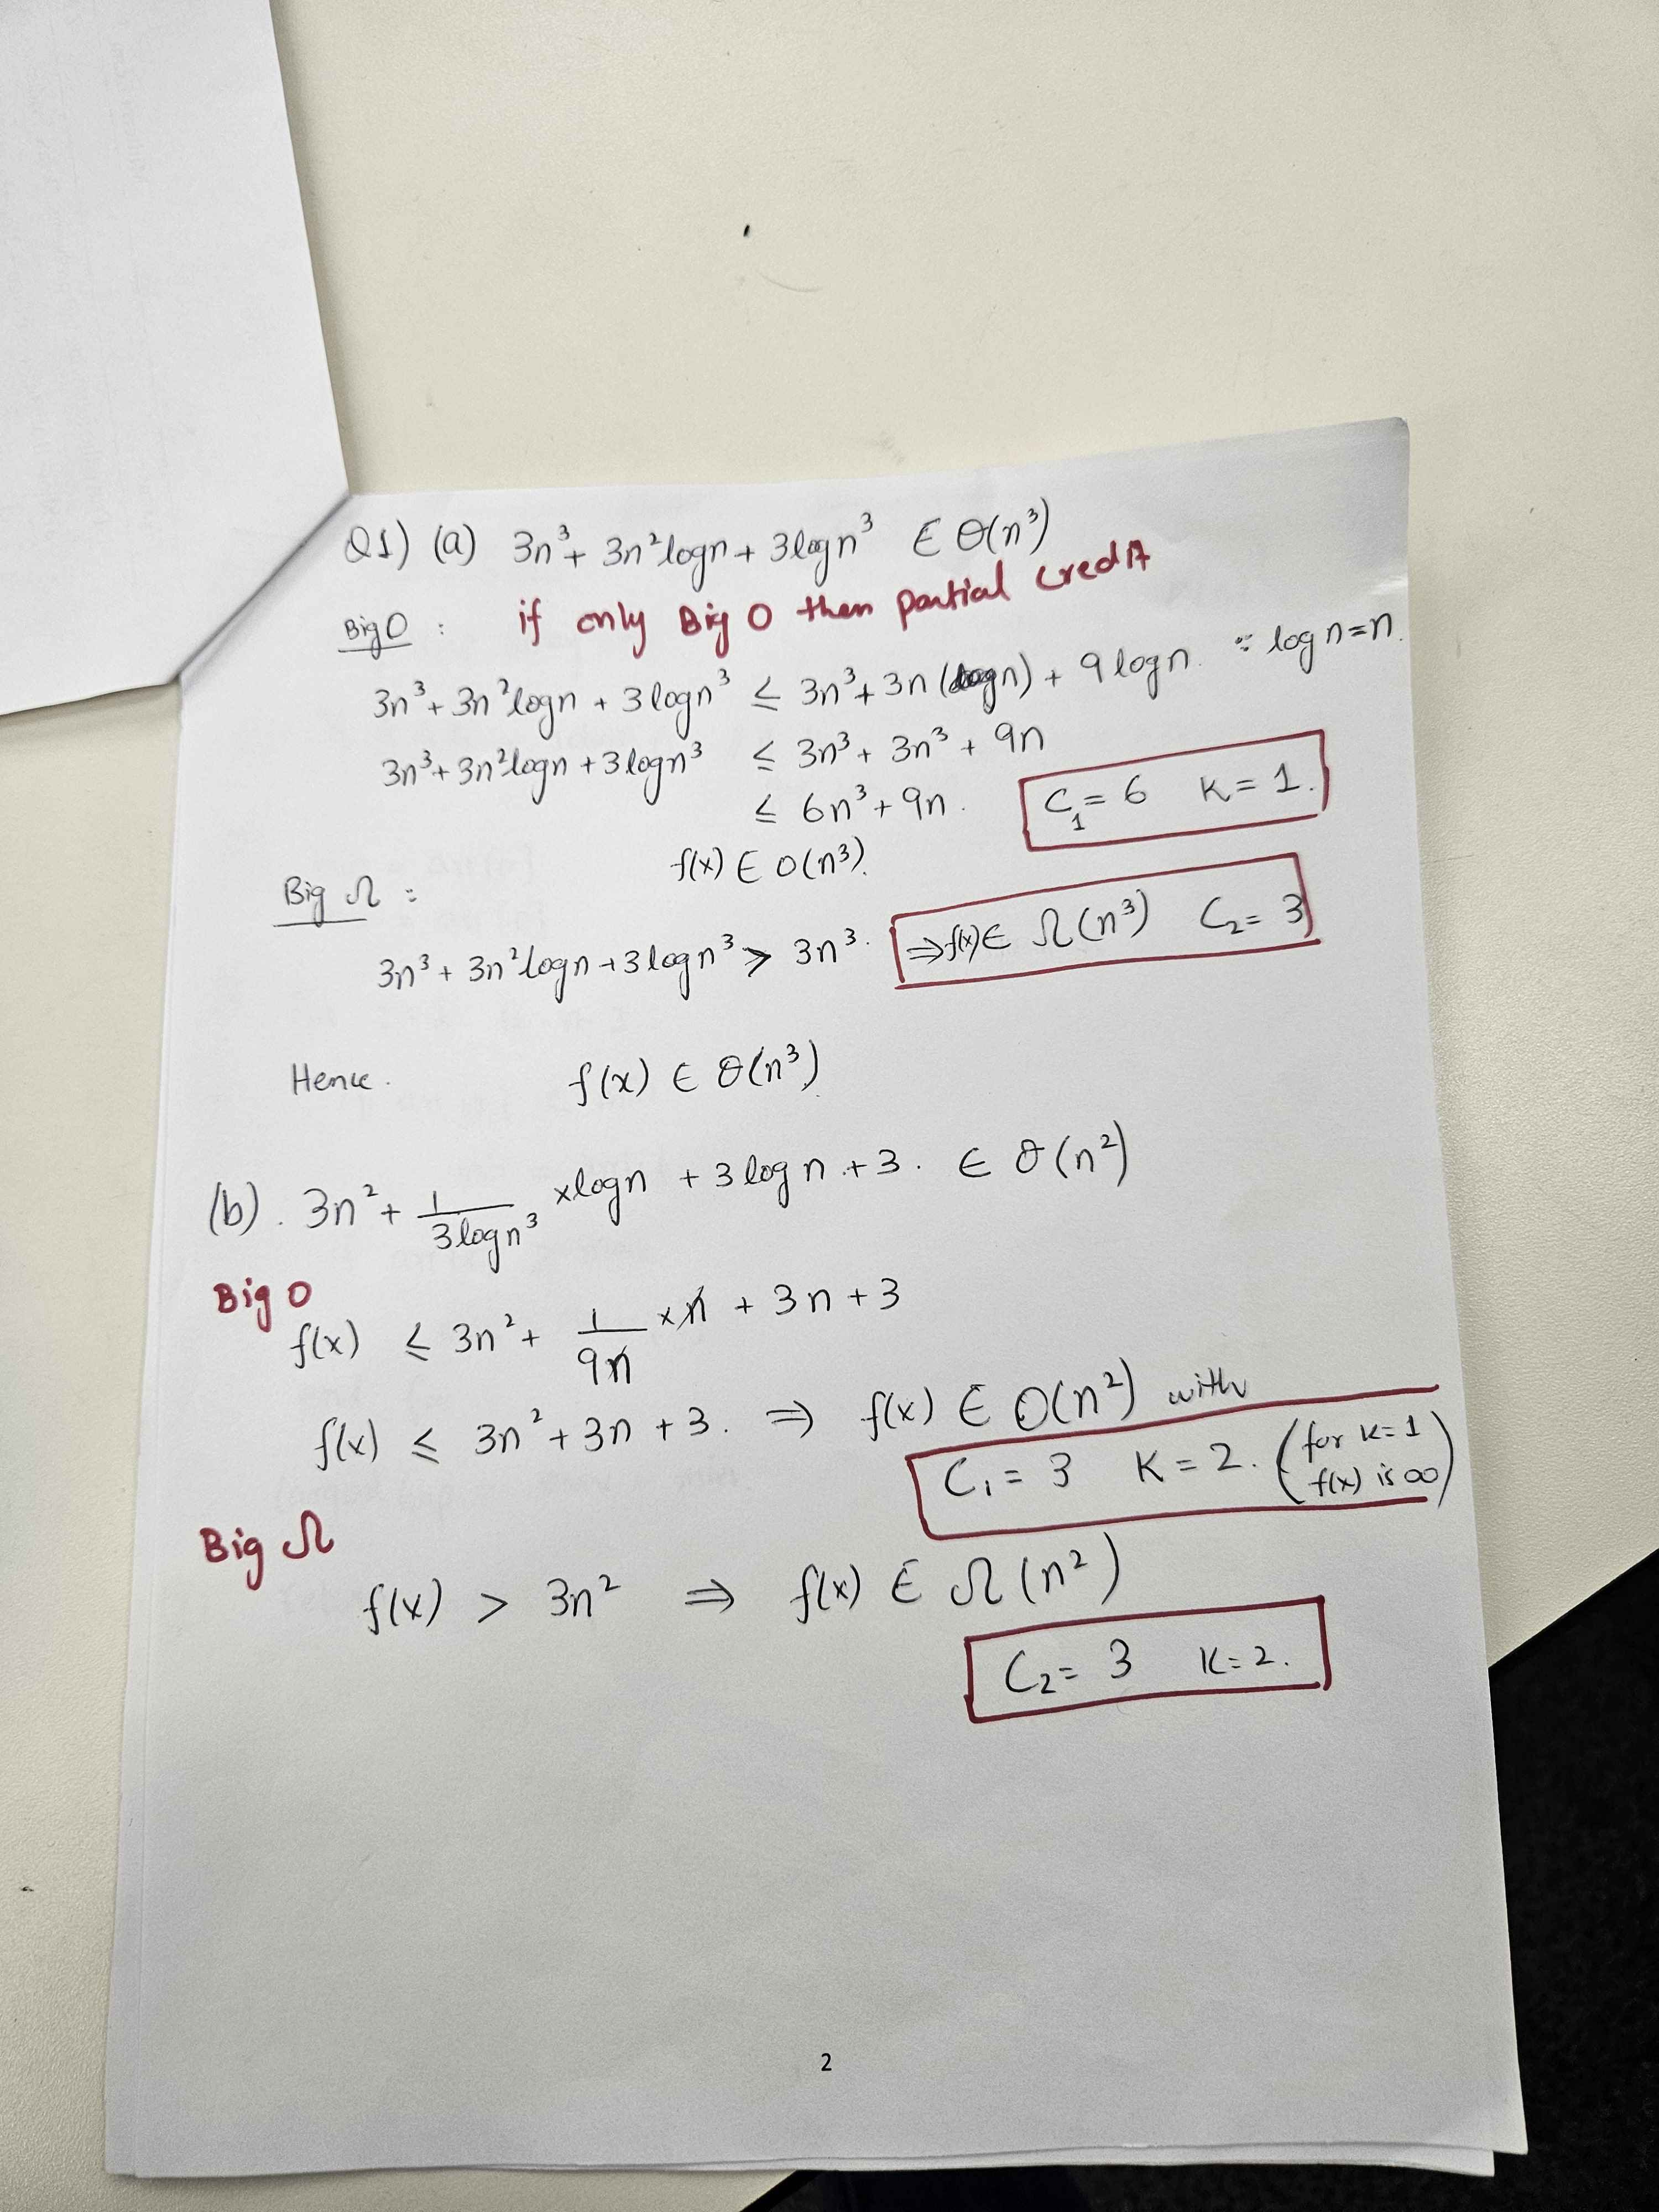 Q1) (a) 3n³ + 3n² log n + 3 log n³ ∈ Θ(n³)
Big O : if only Big O then partial credit
3n³ + 3n² log n + 3 log n³ ≤ 3n³ + 3n (logn) + 9 log n. ∵ log n = n.
3n³ + 3n² log n + 3 log n³ ≤ 3n³ + 3n³ + 9n
≤ 6n³ + 9n. C₁ = 6 K = 1.
f(x) ∈ O(n³).
Big Ω :
3n³ + 3n² log n + 3 log n³ > 3n³. ⇒ f(x) ∈ Ω(n³) C₂ = 3
Hence. f(x) ∈ Θ(n³)
(b). 3n² + 1/(3 log n³) × log n + 3 log n + 3. ∈ Θ(n²)
Big O
f(x) ≤ 3n² + 1/(9n) × n + 3n + 3
f(x) ≤ 3n² + 3n + 3. ⇒ f(x) ∈ O(n²) with
C₁ = 3 K = 2. (for K=1 f(x) is ∞)
Big Ω
f(x) > 3n² ⇒ f(x) ∈ Ω(n²)
C₂ = 3 K = 2.
2